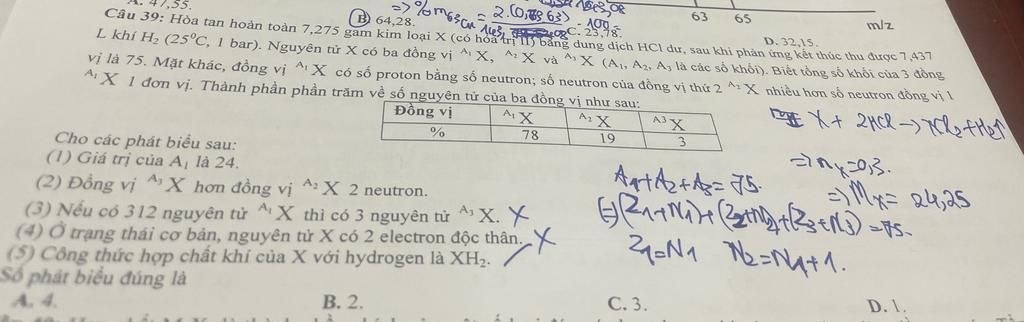 A. 47,55.
B. 64,28.
C. 23,78.
D. 32,15.
63 65
m/z
=> % m 63Cu = 2.(0,  63) .100
Câu 39: Hòa tan hoàn toàn 7,275 gam kim loại X (có hóa trị II) bằng dung dịch HCl dư, sau khi phản ứng kết thúc thu được 7,437
L khí H₂ (25°C, 1 bar). Nguyên tử X có ba đồng vị ᴬ¹X, ᴬ²X và ᴬ³X (A₁, A₂, A₃ là các số khối). Biết tổng số khối của 3 đồng
vị là 75. Mặt khác, đồng vị ᴬ¹X có số proton bằng số neutron; số neutron của đồng vị thứ 2 ᴬ²X nhiều hơn số neutron đồng vị 1
ᴬ¹X 1 đơn vị. Thành phần phần trăm về số nguyên tử của ba đồng vị như sau:
Đồng vị ᴬ¹X ᴬ²X ᴬ³X
% 78 19 3
X + 2HCl → XCl₂ + H₂↑
=> nX = 0,3.
=> MX = 24,25
A₁+A₂+A₃ = 75.
(=) (Z₁+N₁)+(Z₂+N₂)+(Z₃+N₃) = 75.
Z₁=N₁ N₂=N₁+1.
Cho các phát biểu sau:
(1) Giá trị của A₁ là 24.
(2) Đồng vị ᴬ³X hơn đồng vị ᴬ²X 2 neutron.
(3) Nếu có 312 nguyên tử ᴬ¹X thì có 3 nguyên tử ᴬ³X. X
(4) Ở trạng thái cơ bản, nguyên tử X có 2 electron độc thân. X
(5) Công thức hợp chất khí của X với hydrogen là XH₂.
Số phát biểu đúng là
A. 4. B. 2. C. 3. D. 1.